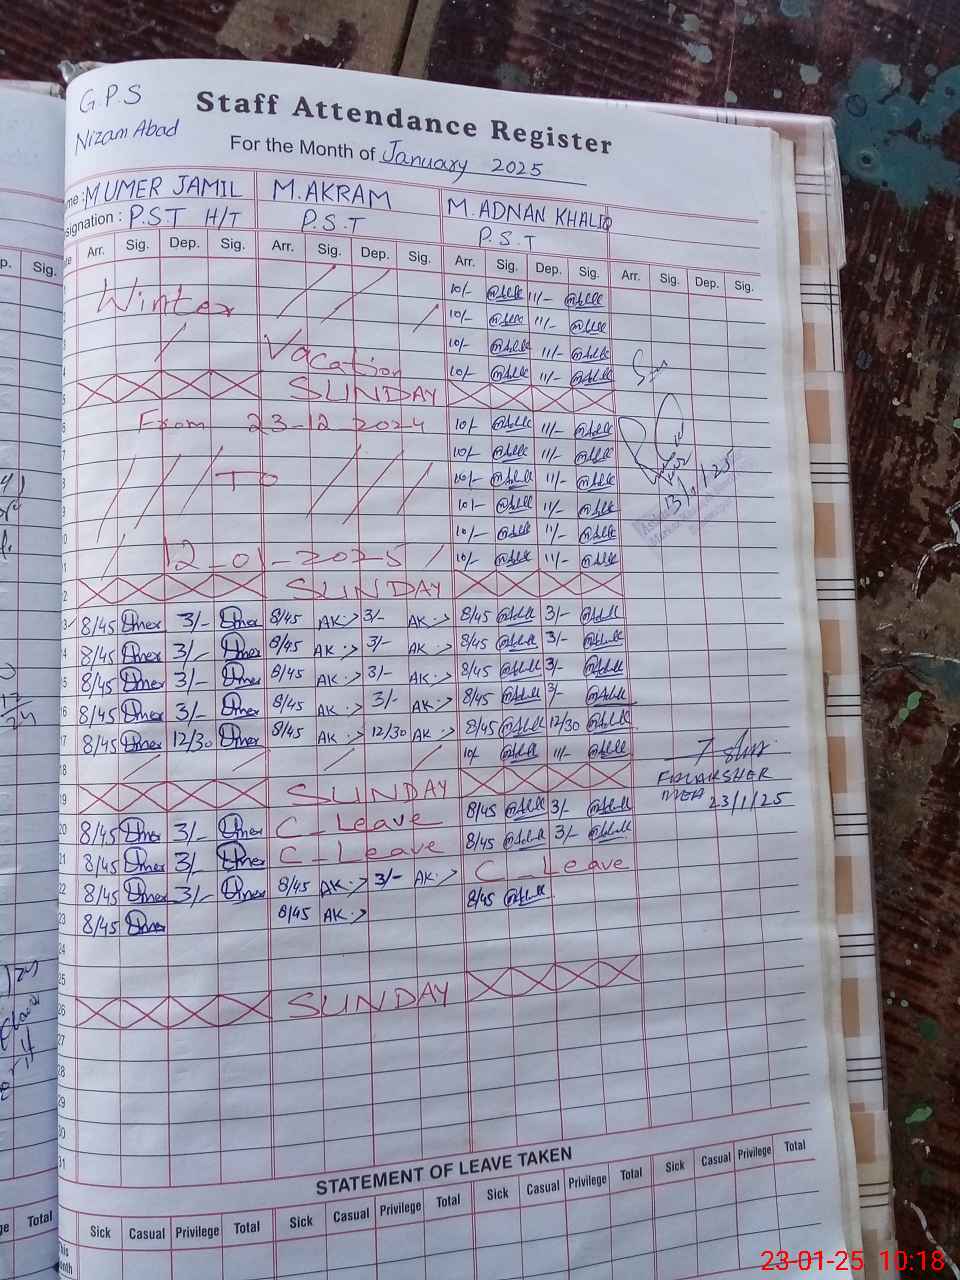 G.P.S
Nizam Abad
Staff Attendance Register
For the Month of January 2025
me : M UMER JAMIL M. AKRAM M. ADNAN KHALIQ
signation : P.S.T H/T P.S.T P.S.T
p. Sig. Arr. Sig. Dep. Sig. Arr. Sig. Dep. Sig. Arr. Sig. Dep. Sig. Arr. Sig. Dep. Sig.
10/- 11/-
Winter 10/- 11/-
10/- 11/-
Vacation 10/- 11/-
SUNDAY
From 23-12-2024 10/- 11/-
10/- 11/-
To 10/- 11/-
10/- 11/-
10/- 11/-
12-01-2025 10/- 11/-
13/1/25
SUNDAY
8/45 Umer 3/- Umer 8/45 AK 3/- AK 8/45 3/-
14 8/45 Umer 3/- Umer 8/45 AK 3/- AK 8/45 3/-
15 8/45 Umer 3/- Umer 8/45 AK 3/- AK 8/45 3/-
16 8/45 Umer 3/- Umer 8/45 AK 3/- AK 8/45 3/-
17 8/45 Umer 12/30 Umer 8/45 AK 12/30 AK 8/45 12/30
18 10/- 11/-
19 SUNDAY
23/1/25
20 8/45 Umer 3/- Umer C-Leave 8/45 3/-
21 8/45 Umer 3/- Umer C-Leave 8/45 3/-
22 8/45 Umer 3/- Umer 8/45 AK 3/- AK C-Leave
23 8/45 Umer 8/45 AK 8/45
24
25
26 SUNDAY
27
28
29
30
31
STATEMENT OF LEAVE TAKEN
ge Total Sick Casual Privilege Total Sick Casual Privilege Total Sick Casual Privilege Total Sick Casual Privilege Total
23-01-25 10:18